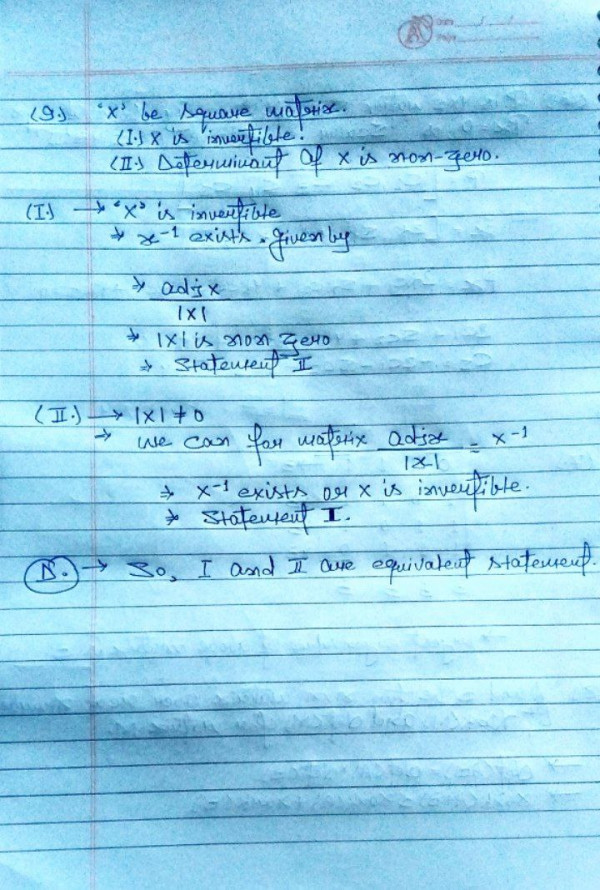 (9.) 'X' be square matrix.
(I.) X is invertible.
(II.) Determinant of X is non-zero.
(I.) → 'X' is invertible
⇒ x⁻¹ exists. given by
⇒ adj x
|x|
⇒ |x| is non zero
⇒ Statement II
(II.) → |x| ≠ 0
⇒ we can for matrix adjx / |x| = x⁻¹
⇒ x⁻¹ exists or x is invertible.
⇒ Statement I.
D. → So, I and II are equivalent statement.